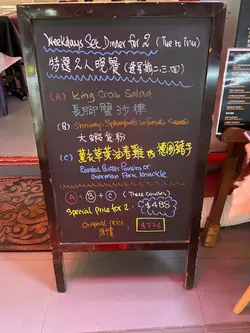 Weekdays Set Dinner for 2 (Tue to Thu)
特選2人晚餐 (逢星期二,三,四)
(A) King Crab Salad
長腳蟹沙律
(B) Shrimp Spaghetti in Tomato Sauce
大蝦意粉
(C) 黃油春雞 or 德國豬手
Roasted Butter or
German Pork Knuckle
A + B + C (Three Courses)
Special Price for 2: $485
Original price
原價
$774